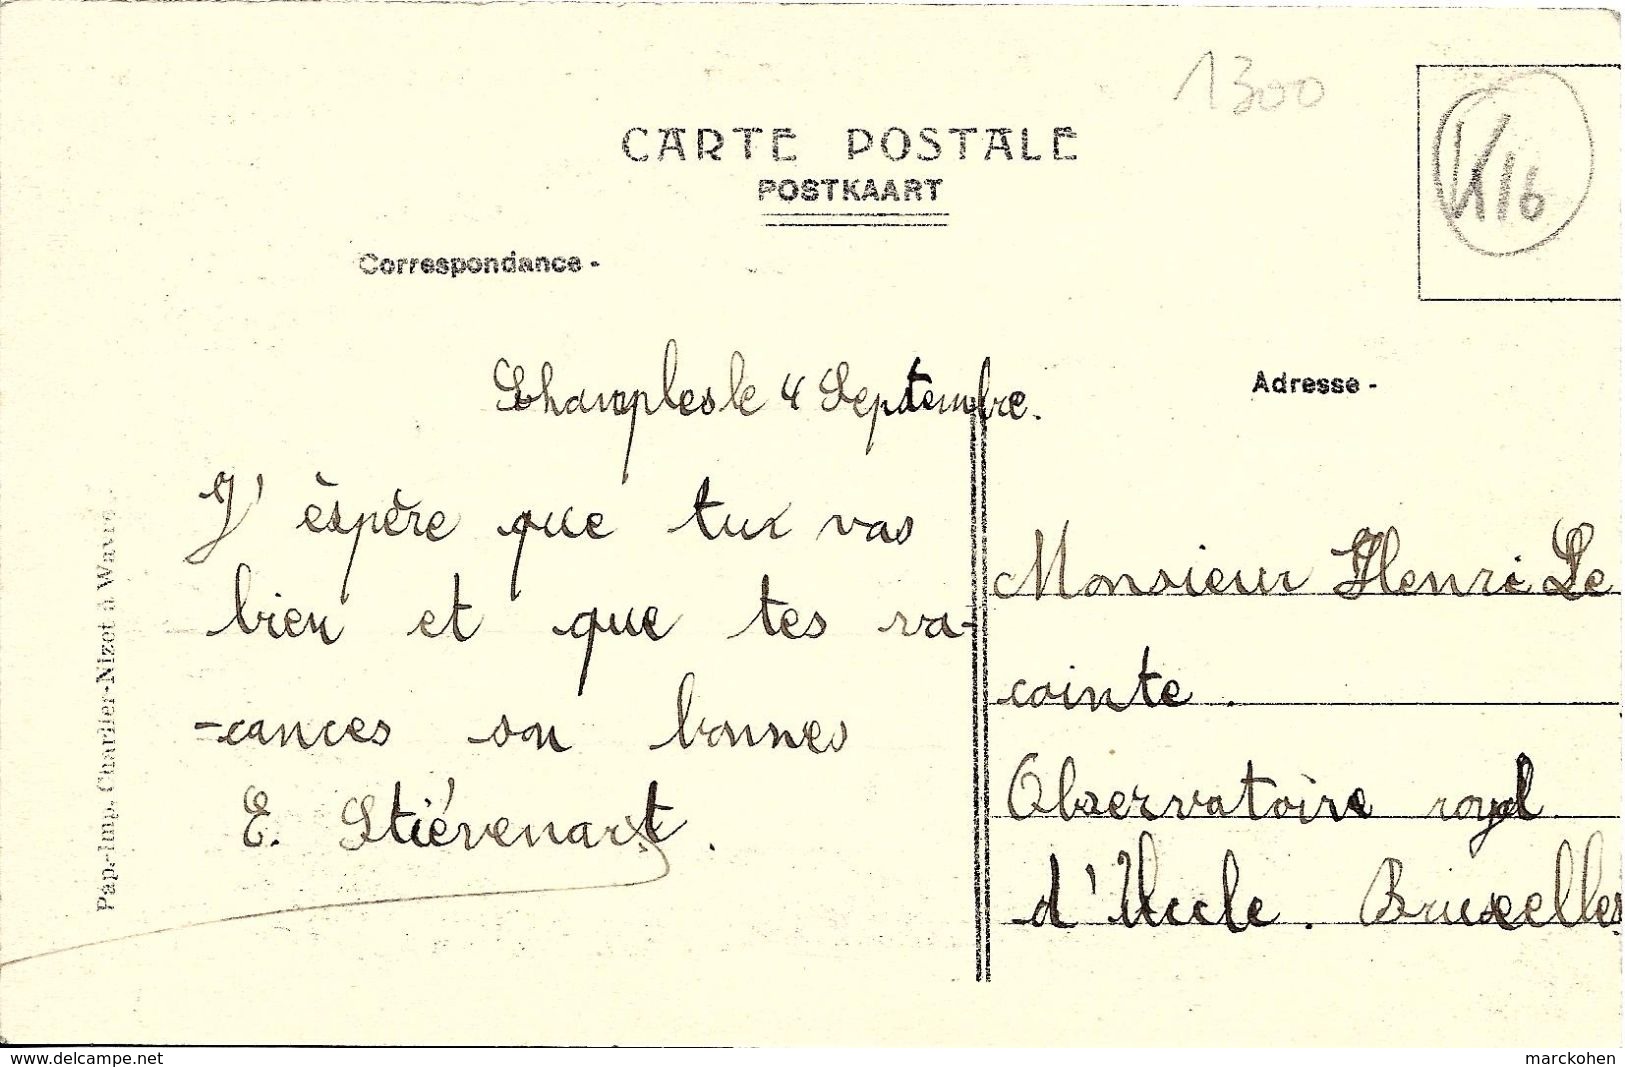 1300
CARTE POSTALE
POSTKAART
K16
Correspondance -
Adresse -
le 4 Septembre.
J'èspère que tu vas
bien et que tes va-
-cances son bonnes
E. Stiévenart.
Monsieur Henri Le
cointe.
Observatoire royal
d'Uccle. Bruxelles.
Pap.-Imp. Charlier-Nizet à Wavre.
www.delcampe.net
marckohen